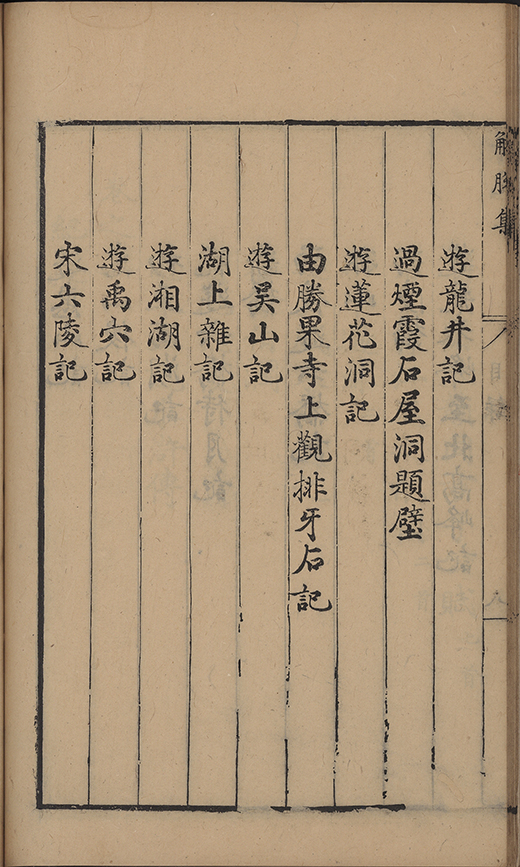 解脫集
遊龍井記
過煙霞石屋洞題壁
遊蓮花洞記
由勝果寺上觀排牙石記
遊吳山記
湖上雜記
遊湘湖記
遊禹穴記
宋六陵記